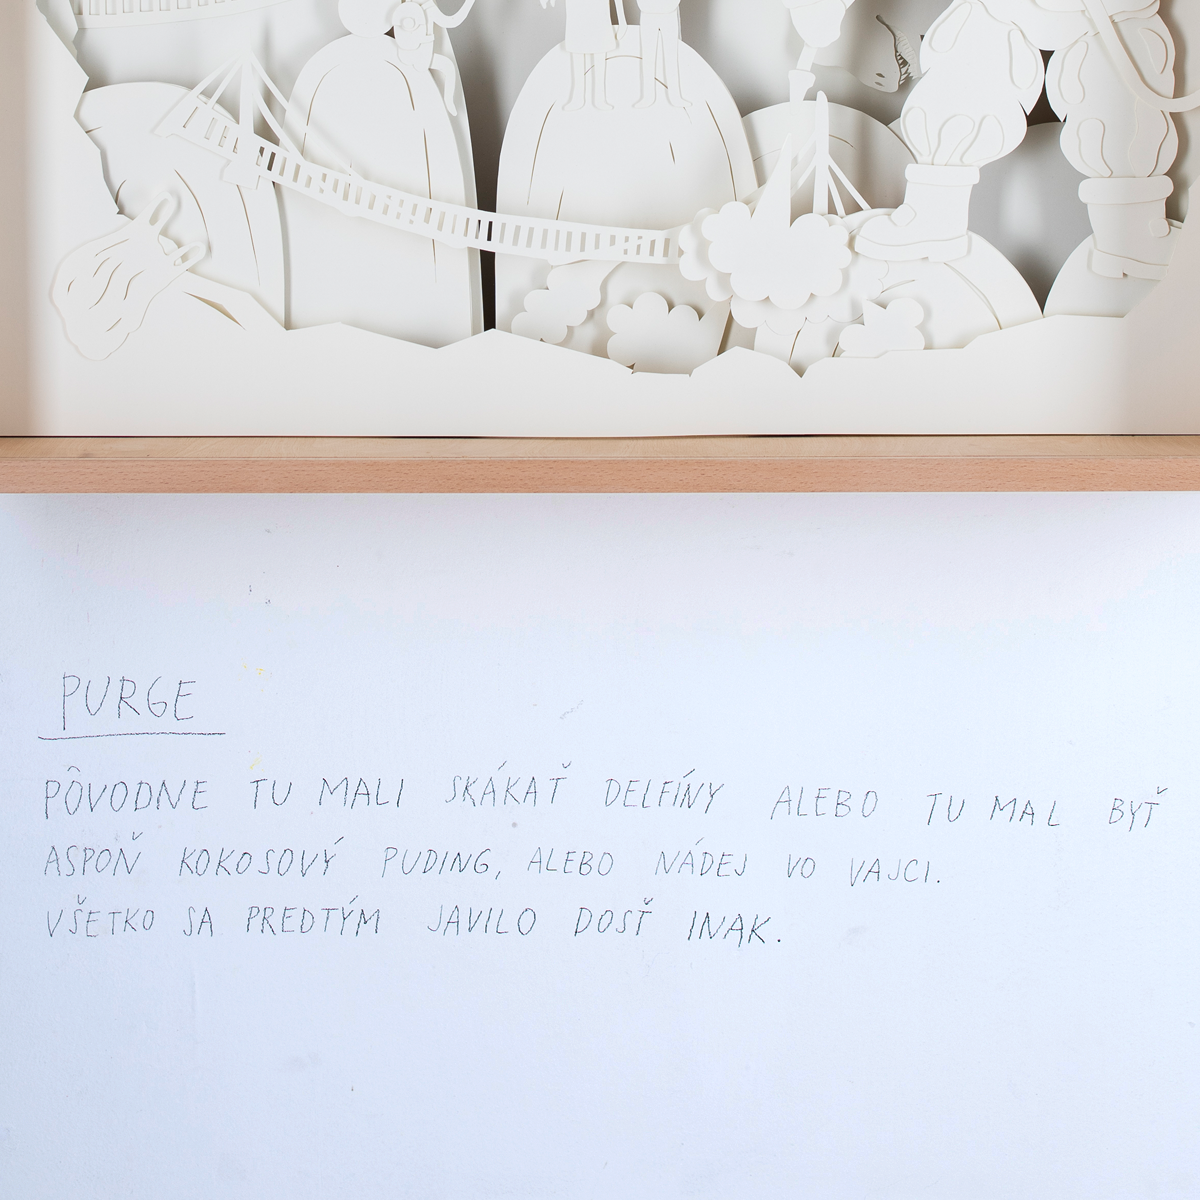 PURGE
PÔVODNE TU MALI SKÁKAŤ DELFÍNY ALEBO TU MAL BYŤ
ASPOŇ KOKOSOVÝ PUDING, ALEBO NÁDEJ VO VAJCI.
VŠETKO SA PREDTÝM JAVILO DOSŤ INAK.